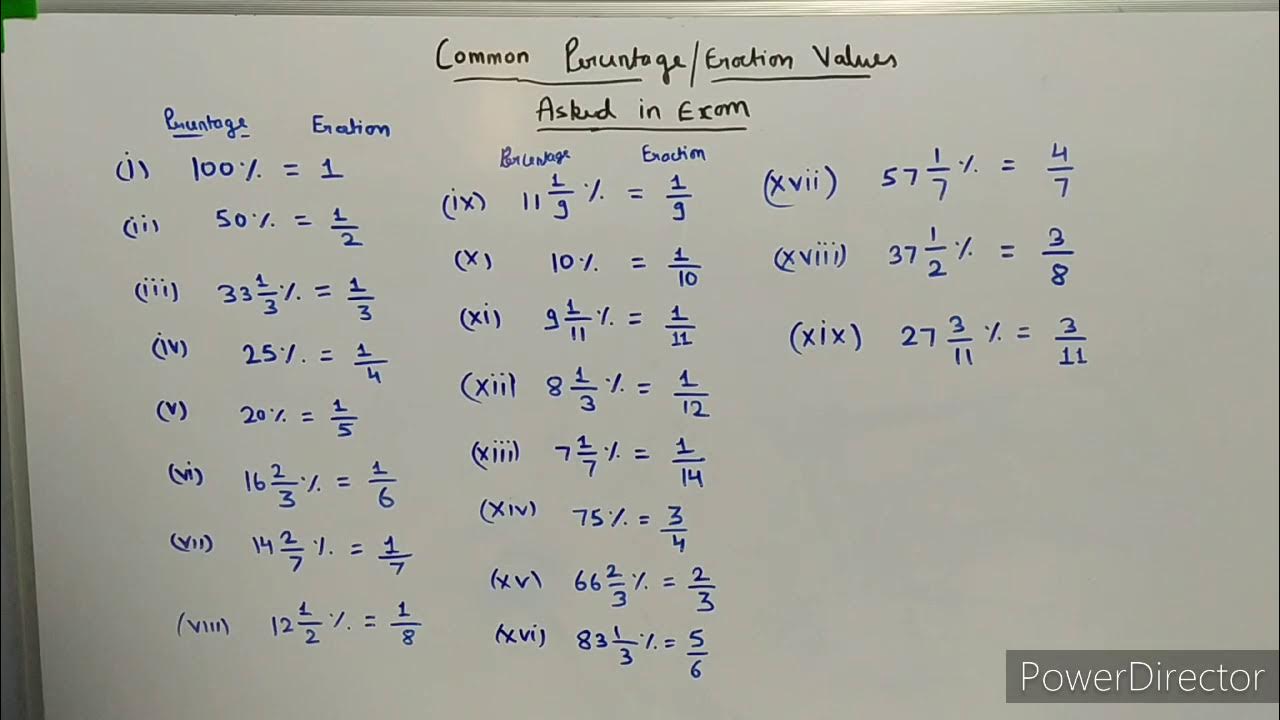 Common Percentage/Fraction Values
Asked in Exam
Percentage Fraction
(i) 100% = 1
(ii) 50% = 1/2
(iii) 33 1/3 % = 1/3
(iv) 25% = 1/4
(v) 20% = 1/5
(vi) 16 2/3 % = 1/6
(vii) 14 2/7 % = 1/7
(viii) 12 1/2 % = 1/8
Percentage Fraction
(ix) 11 1/9 % = 1/9
(x) 10% = 1/10
(xi) 9 1/11 % = 1/11
(xii) 8 1/3 % = 1/12
(xiii) 7 1/7 % = 1/14
(xiv) 75% = 3/4
(xv) 66 2/3 % = 2/3
(xvi) 83 1/3 % = 5/6
(xvii) 57 1/7 % = 4/7
(xviii) 37 1/2 % = 3/8
(xix) 27 3/11 % = 3/11
PowerDirector